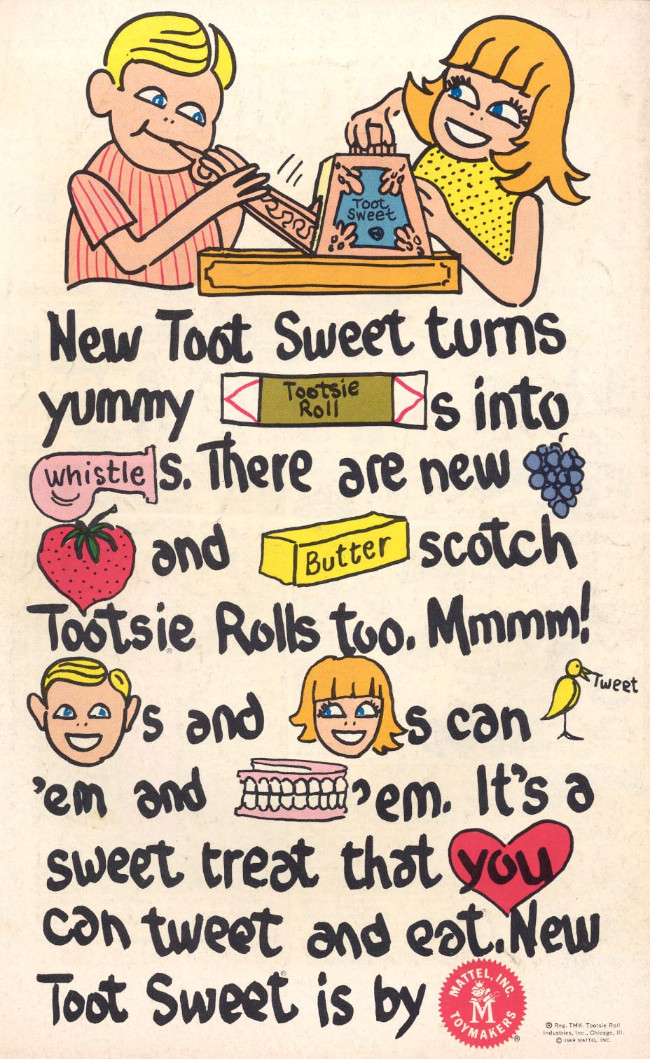 Toot
Sweet
New Toot Sweet turns
yummy Tootsie Roll s into
whistle s. There are new
and Butter scotch
Tootsie Rolls too. Mmmm!
s and s can Tweet
'em and 'em. It's a
sweet treat that you
can tweet and eat. New
Toot Sweet® is by MATTEL, INC. M TOYMAKERS ®
® Reg. TMK. Tootsie Roll
Industries, Inc., Chicago, Ill.
© 1969 MATTEL, INC.